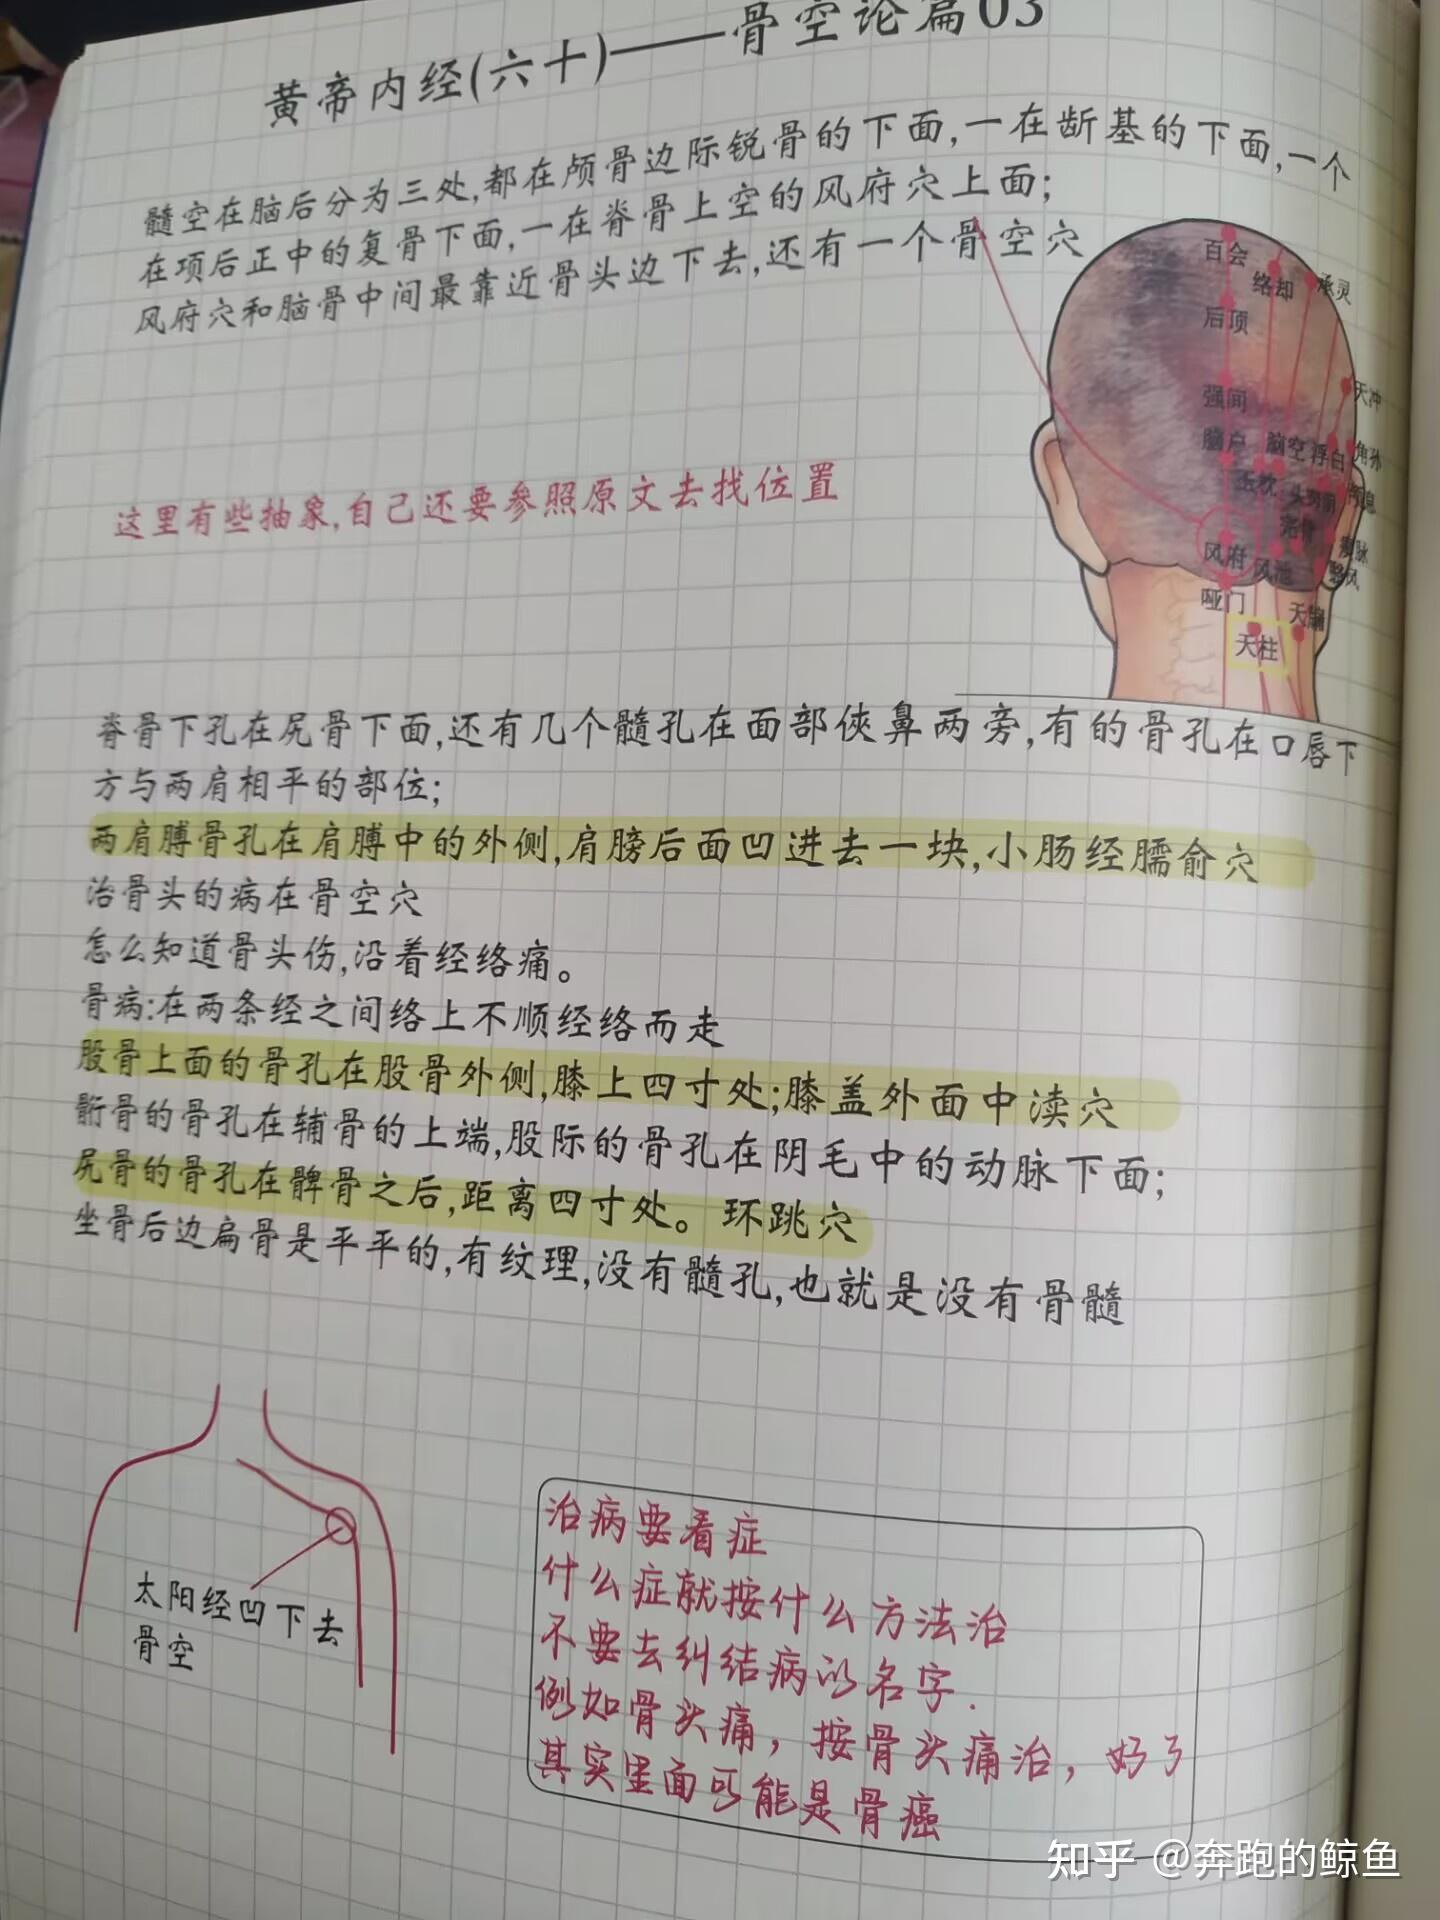 黄帝内经(六十)——骨空论篇03
髓空在脑后分为三处,都在颅骨边际锐骨的下面,一在龂基的下面,一个
在项后正中的复骨下面,一在脊骨上空的风府穴上面;
风府穴和脑骨中间最靠近骨头边下去,还有一个骨空穴
百会
络却
承灵
后顶
天冲
强间
脑户
脑空
浮白
角孙
玉枕
头窍阴
完骨
风府
风池
瘈脉
哑门
天牖
天柱
这里有些抽象,自己还要参照原文去找位置
脊骨下孔在尻骨下面,还有几个髓孔在面部侠鼻两旁,有的骨孔在口唇下
方与两肩相平的部位;
两肩膊骨孔在肩膊中的外侧,肩膀后面凹进去一块,小肠经臑俞穴
治骨头的病在骨空穴
怎么知道骨头伤,沿着经络痛。
骨病:在两条经之间络上不顺经络而走
股骨上面的骨孔在股骨外侧,膝上四寸处;膝盖外面中渎穴
骱骨的骨孔在辅骨的上端,股际的骨孔在阴毛中的动脉下面;
尻骨的骨孔在髀骨之后,距离四寸处。环跳穴
坐骨后边扁骨是平平的,有纹理,没有髓孔,也就是没有骨髓
太阳经凹下去
骨空
治病要看症
什么症就按什么方法治
不要去纠结病的名字.
例如骨头痛，按骨头痛治，好了
其实里面可能是骨癌
知乎 @奔跑的鲸鱼